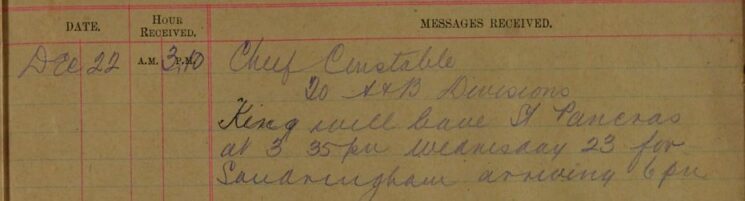 DATE. HOUR RECEIVED. MESSAGES RECEIVED.
Dec 22 A.M. 3.10 P.M. Chief Constable
To A & B Divisions
King will leave St Pancras
at 3 35 pm Wednesday 23 for
Sandringham arriving 6 pm